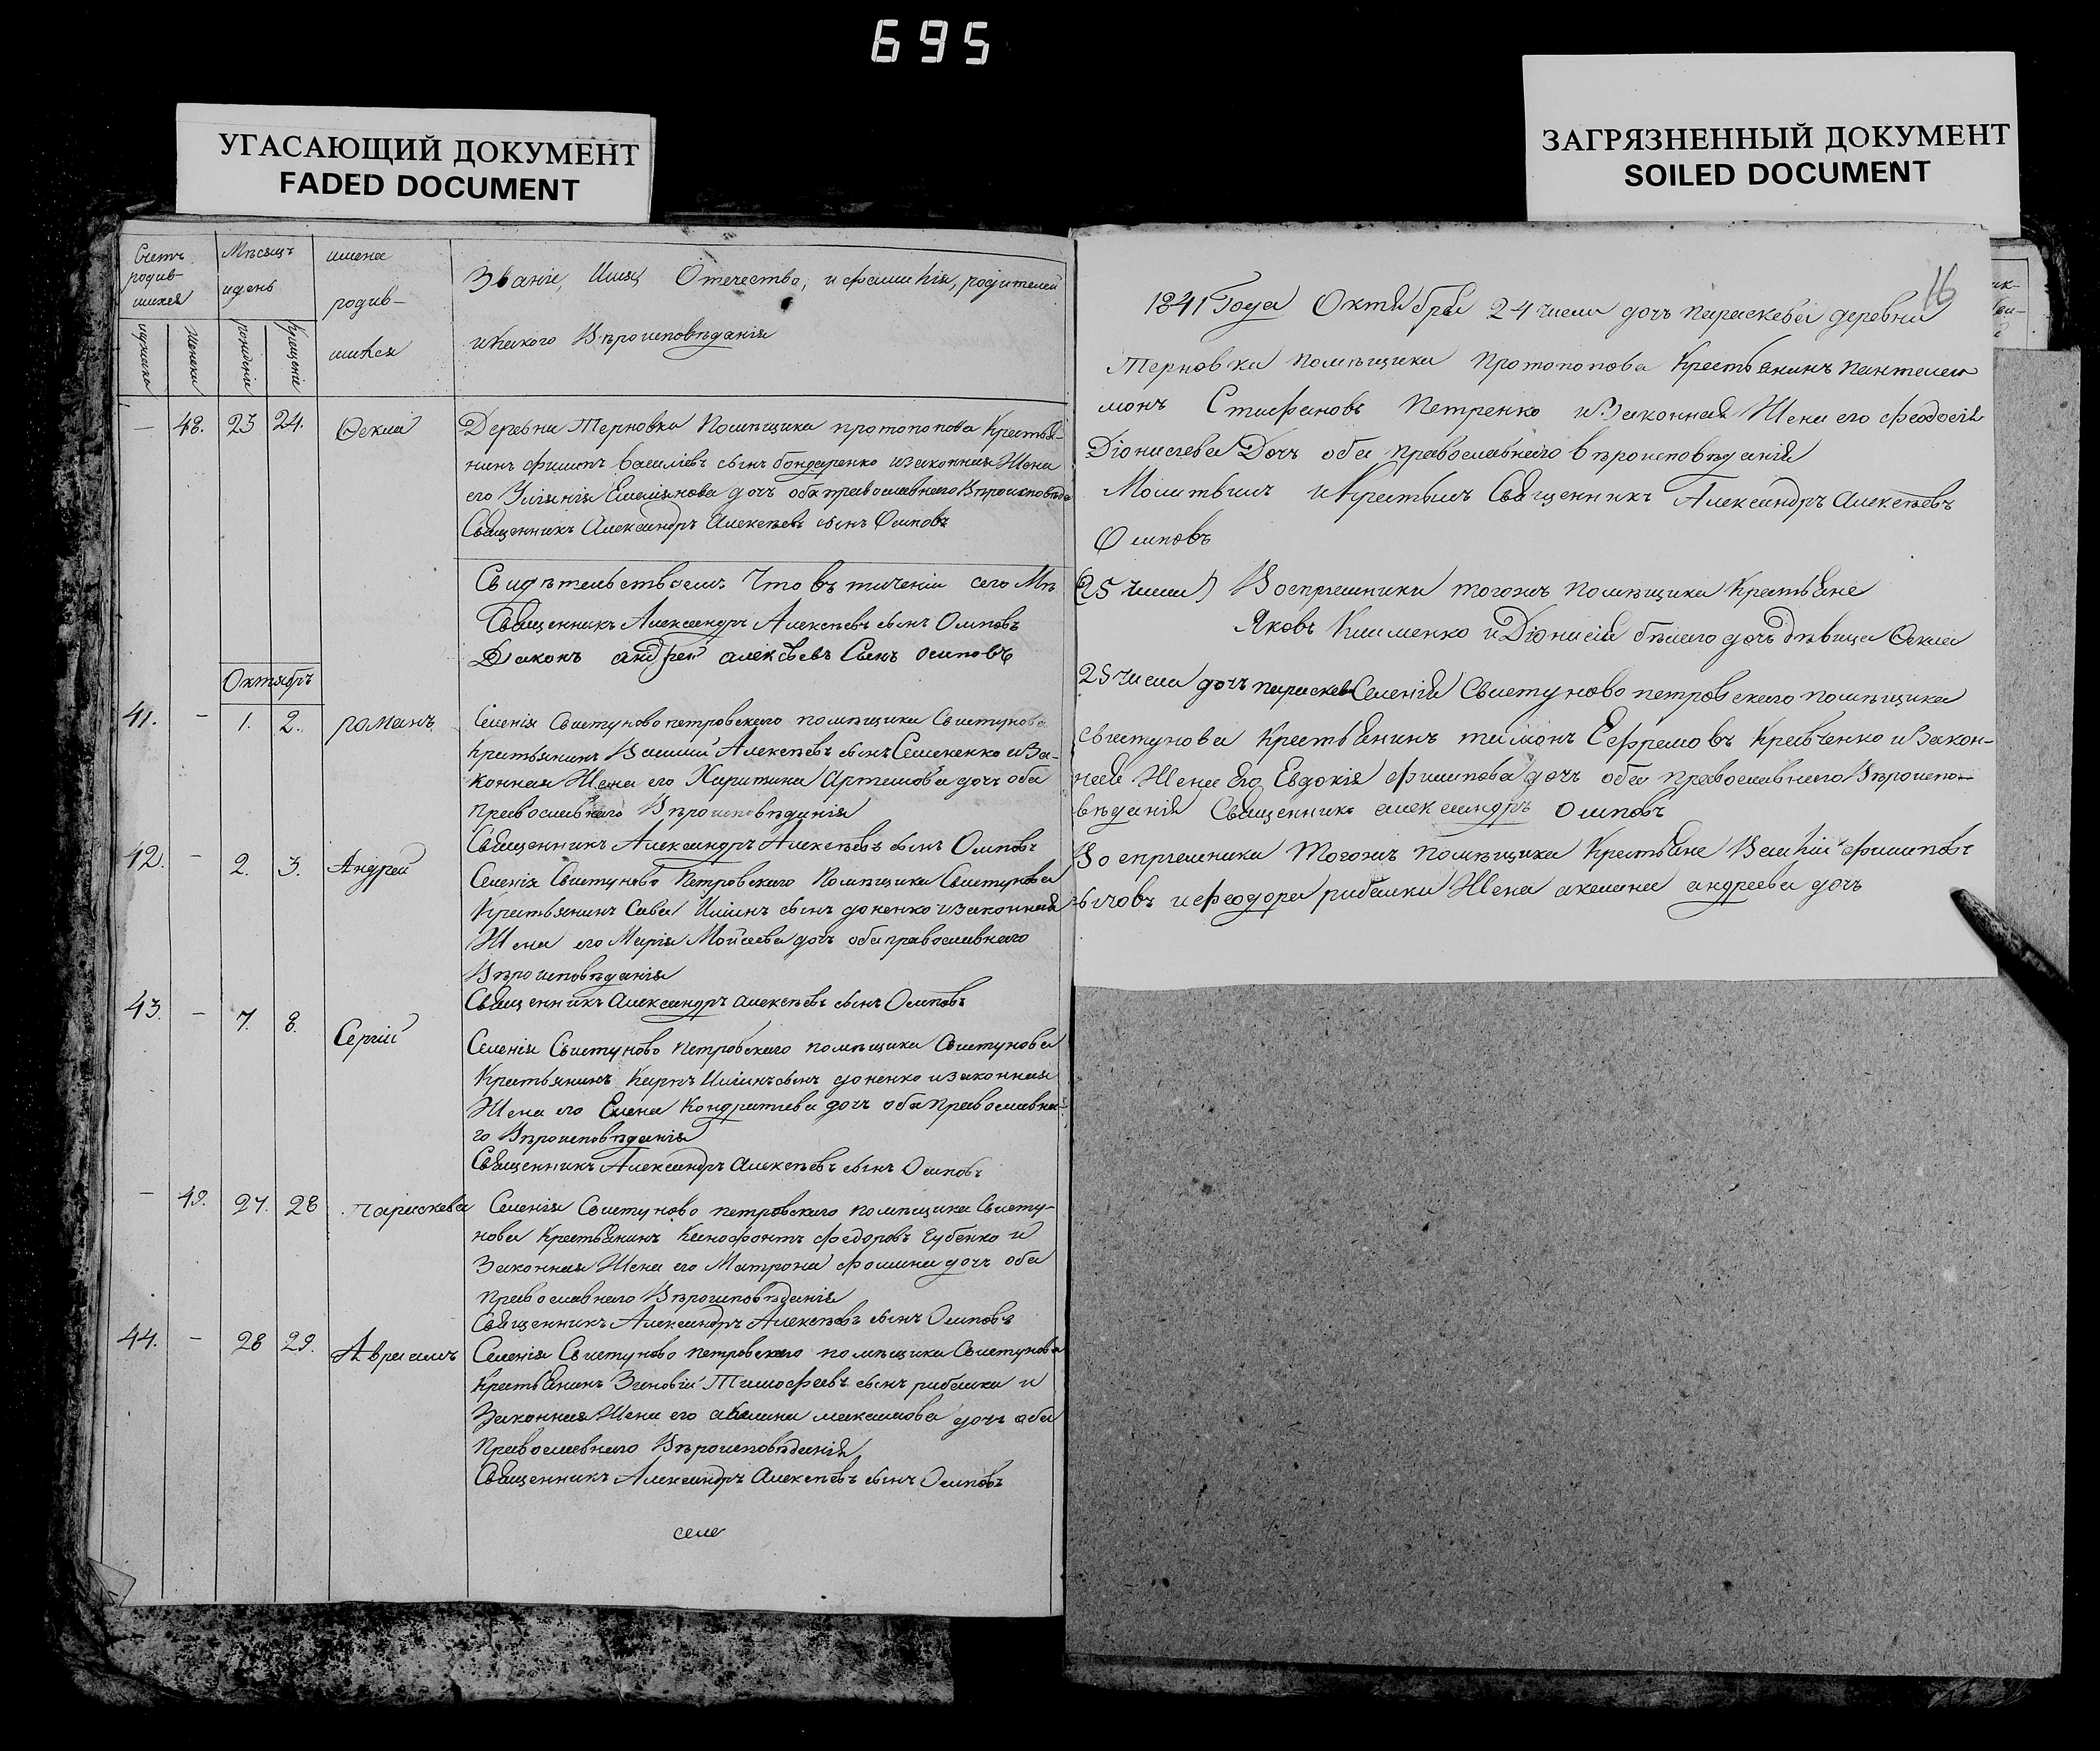 695
УГАСАЮЩИЙ ДОКУМЕНТ
FADED DOCUMENT
ЗАГРЯЗНЕННЫЙ ДОКУМЕНТ
SOILED DOCUMENT
Счетъ родив-шихся
Мѣсяцъ и день
имена родив-шихся
Званіе, Имя, Отечество, и фамилія, родителей
и какого Вѣроисповѣданія
мужеска
Женска
рожденія
Крещенія
— 48. 23 24. Ѳекла
Деревни Терновки Помѣщика протопопова Крестья-
нинъ филипъ василіевъ сынъ бондаренко изаконная Жена
его Уліянія Емеліянова дочь оба православнаго Вѣроисповѣда
Священникъ Александръ Алексѣевъ сынъ Осиповъ
Свидѣтельствоемъ Что въ теченіи сего Мѣ
Священникъ Александръ Алексѣевъ сынъ Осиповъ
Диаконъ андрей алексѣевъ Сынъ осиповъ
Октябрь
41. — 1. 2. романъ
Селенія Свистуново петровскаго помѣщика Свистунова
Крестьянинъ Василий Алексѣевъ сынъ Семененко и За-
конная Жена его Харитина Артемова дочь оба
Православнаго Вѣроисповѣданія
Священникъ Александръ Алексѣевъ сынъ Осиповъ
42. — 2. 3. Андрей
Селенія Свистуново Петровскаго Помѣщика Свистунова
Крестьянинъ Сава Илiинъ сынъ доненко изаконная
Жена его Марія Мойсѣева дочь оба православнаго
Вѣроисповѣданія
Священникъ Александръ алексѣевъ сынъ Осиповъ
43. — 7. 8. Сергій
Селенія Свистуново Петровскаго помѣщика Свистунова
Крестьянинъ Карпъ Илiинъ сынъ доненко изаконная
Жена его Елена Кондратиева дочь оба Православна-
го Вѣроисповѣданія
Священникъ Александръ алексѣевъ сынъ Осиповъ
— 49. 27. 28 параскева
Селенія Свистуново петровскаго помѣщика Свисту-
нова Крестьянинъ Ксенофонтъ федоровъ Губенко и
Законная Жена его Матрона фомина дочь оба
Православнаго Вѣроисповѣданія
Священникъ Александръ Алексѣевъ сынъ Осиповъ
44. — 28 29. Авраамъ
Селенія Свистуново петровскаго помѣщика Свистунова
Крестьянинъ Зѣновій Тимофѣевъ сынъ рибалка и
Законная Жена его акилина максимова дочь оба
Православнаго Вѣроисповѣданія
Священникъ Александръ Алексѣевъ сынъ Осиповъ
селе
16
1841 Года Октября 24 числа дочь параскева деревни
Терновки помѣщика Протопопова Крестьянинъ пантелеи
монъ Стифановъ Петренко и Законная Жена его феодосія
Діонисіева Дочь оба православнаго вѣроисповѣданія
Молитвилъ и Крестилъ Священникъ Александръ алексѣевъ
Осиповъ
(25 числа) Воспріемники тогожъ помѣщика Крестьяне
Яковъ Клименко и Діонисія бѣлаго дочь дѣвица Ѳекла
25 числа дочь параскева Селенія Свистуново петровскаго помѣщика
свистунова Крестьянинъ тимонъ Еефремовъ Кравченко и Закон-
ная Жена Его Евдокія филипова дочь оба православнаго Вѣроиспо-
вѣданія Священникъ александръ Осиповъ
Воспріемники Тогожъ помѣщика Крестьяне филиповъ
и феодора рибалки Жена акилина андреева дочь